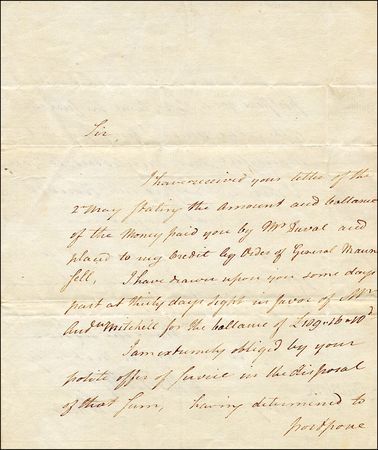 Sir,
I have received your letter of the
2d May stating the Amount and ballance
of the Money paid you by Mr Duval and
placed to my Credit by Order of General Maun
sell, I have drawn upon you some days
past at thirty days sight in favor of Mr
Andw Mitchell for the ballance of £109-16-10d
I am extremely obliged by your
polite offer of Service in the disposal
of that Sum, having determined to
postpone